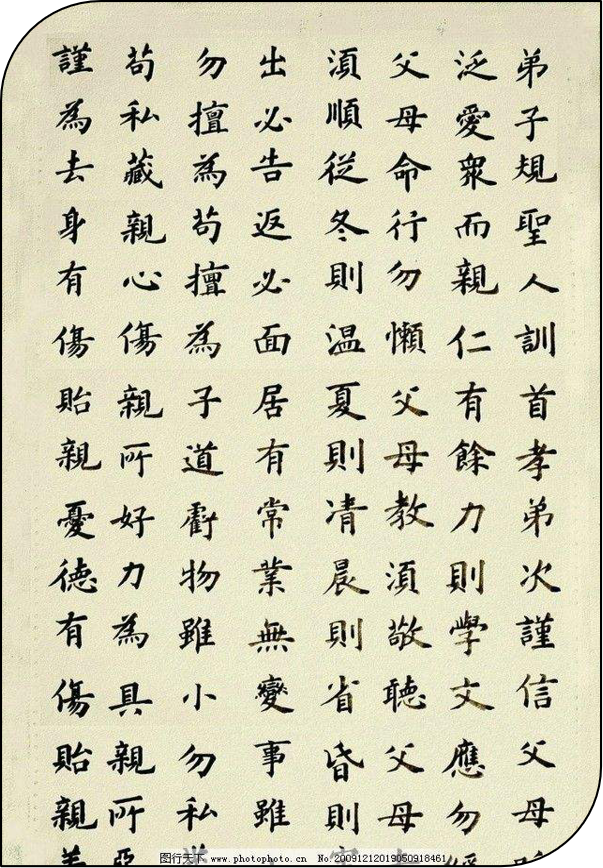 弟子規聖人訓首孝弟次謹信父母
泛愛衆而親仁有餘力則學文應勿
父母命行勿懶父母教須敬聽父母
須順從冬則温夏則凊晨則省昏則
出必告返必面居有常業無變事雖
勿擅為苟擅為子道虧物雖小勿私
苟私藏親心傷親所好力為具親所
謹為去身有傷貽親憂德有傷貽親
图行天下 www.photophoto.cn No.20091212019050918461